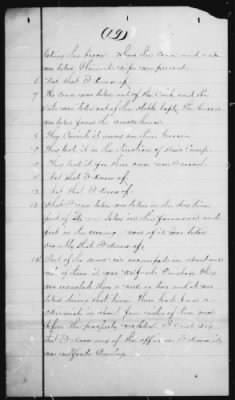 (19)
taking the bacon. When the corn and oats
was taken Planciel wife was present.
6 Not that I know of.
7 The corn was taken out of the Crib and the
oats was taken out of the stable loft. The bacon
was taken from the smoke house.
8 They Carried it away on their horses
9 They took it in the direction of their Camp.
10 They took it for their own use I reckon.
11 Not that I know of.
12 Not that I know of.
13 What I saw taken was taken in the day time
part of it was taken in the forenoon and
part in the evening. None of it was taken
secretly that I know of.
14 Part of the army was encamped in about one
mi' of there it was
They
was encamped there a week or two and it was
taken during that time. There had been a
skirmish in about four miles of there
before the property was taken. I cant say
that I knew any of the officers I
was